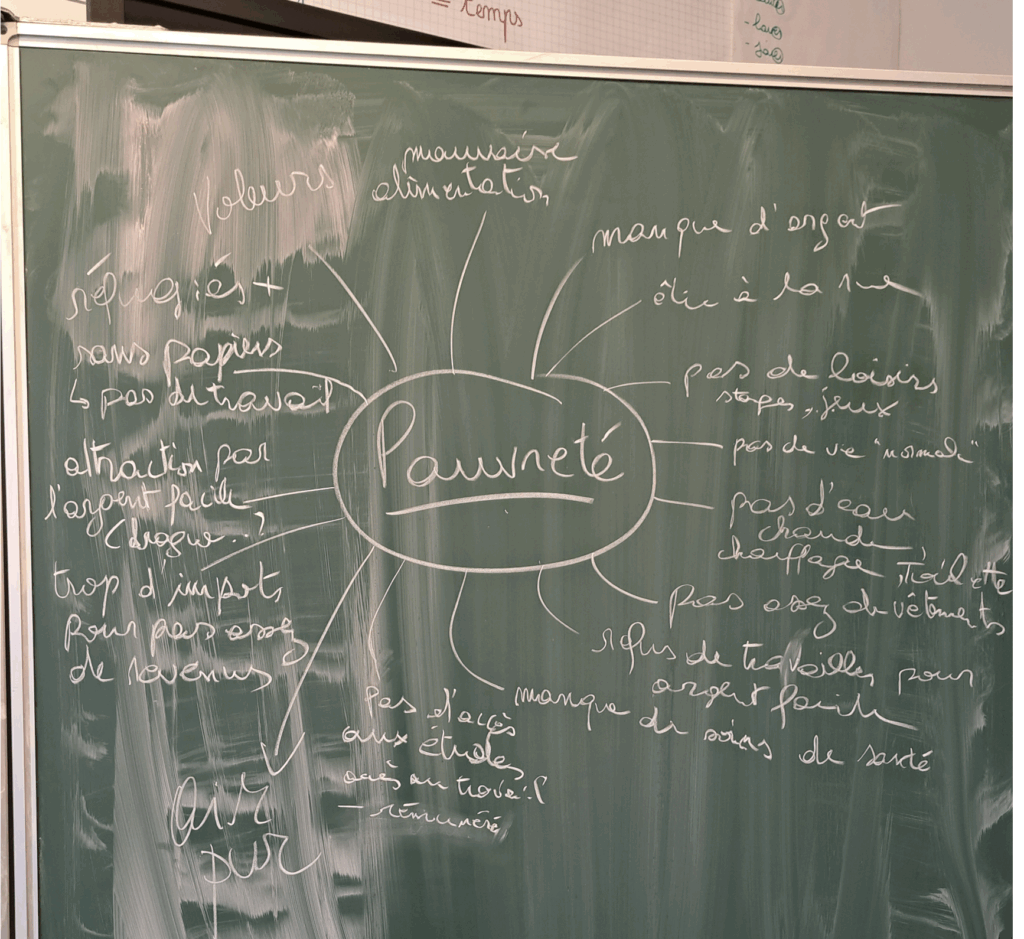 = temps
- laves
voleurs
mauvaise
alimentation
manque d'argent
être à la rue
réfugiés +
sans papiers
↳ pas de travail
pas de loisirs
stages, jeux
Pauvreté
pas de vie "normale"
attraction par
l'argent facile
(drogue..)
pas d'eau
chaude
chauffage, toilette
trop d'impots
pour pas assez
de revenus
pas assez de vêtements
refus de travailler pour
argent facile
manque de soins de santé
pas d'accès
aux études
accès au travail
- rémunéré
air
pur